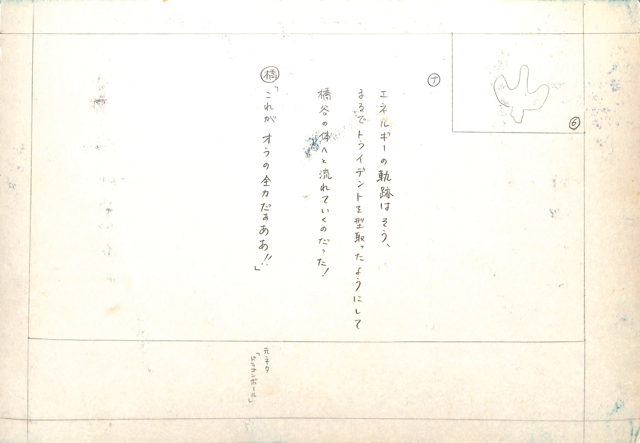 ⑥
ナ
エネルギーの軌跡はそう、
まるでトライデントを型取ったようにして
橘谷の体へと流れていくのだった!
橘「これが オラの全力だぁああ!!」
元ネタ
「ドラゴンボール」